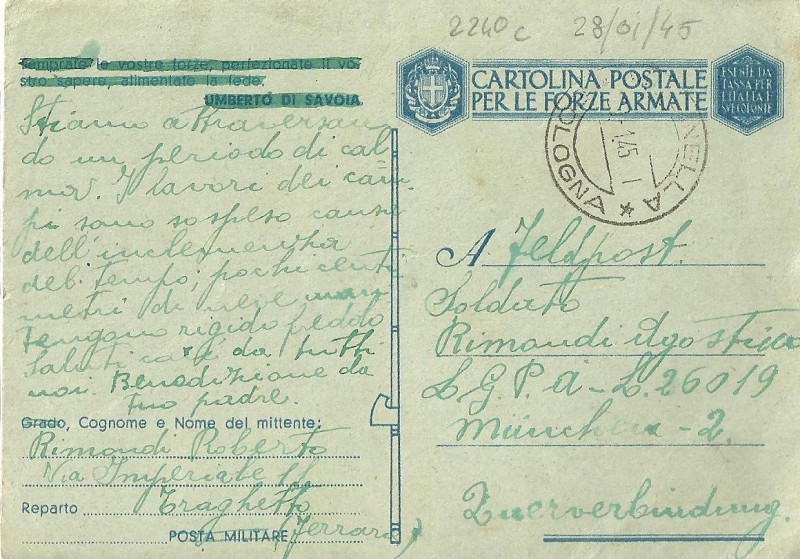 2240c 28/01/45
Temprate le vostre forze, perfezionate il vo-
stro sapere, alimentate la fede.
UMBERTO DI SAVOIA
CARTOLINA POSTALE
PER LE FORZE ARMATE
ESENTE DA
TASSA PER
L'ITALIA
BOLOGNA
Stiamo attraversan
do un periodo di cal
ma. I lavori dei cam
pi sono sospeso causa
dell'inclemenza
del tempo, pochi centi
metri di neve man
tengono rigido freddo
Saluti cari da tutti
noi. Benedizione da
tuo padre.
A Feldpost.
Soldato
Rimondi Agostino
L.G.P.A-L.26019
München-2.
Zuerverbindung.
Grado, Cognome e Nome del mittente:
Rimondi Roberto
Via Imperiale
Reparto Traghetto
POSTA MILITARE (Ferrara)